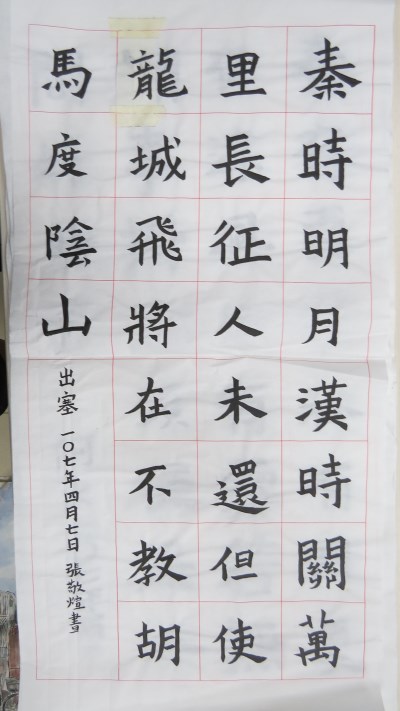 秦時明月漢時關萬
里長征人未還但使
龍城飛將在不教胡
馬度陰山
出塞 一〇七年四月七日 張敬煊書